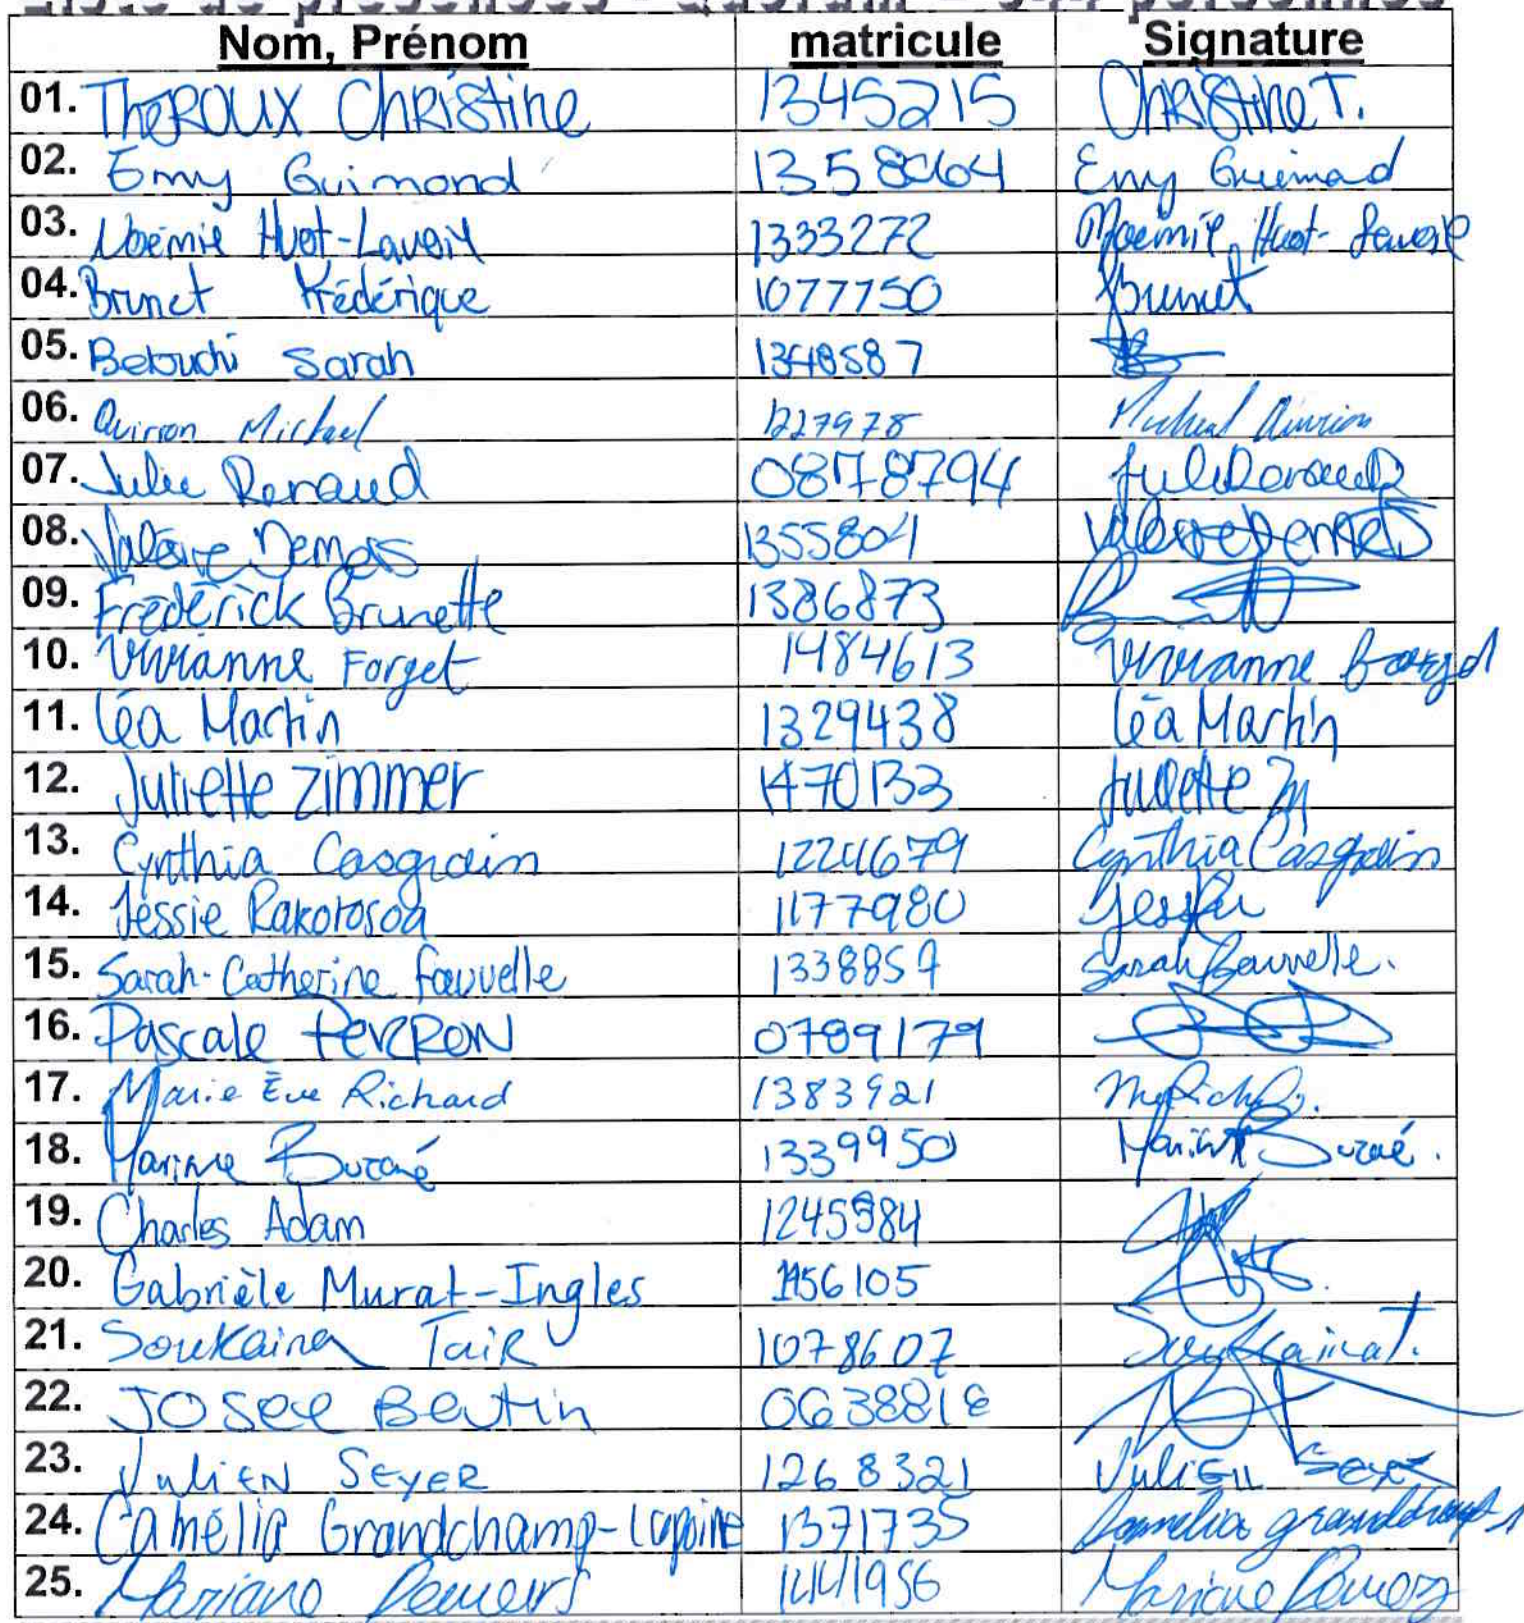 Liste de présences - Quorum personnes
Nom, Prénom matricule Signature
01. TheROUX Christine 1345215 Christine T.
02. Emy Guimond 1358964 Emy Guimond
03. Noémie Huot-Lavoie 1333272 Noémie Huot-Lavoie
04. Brunet Frédérique 1077750 Brunet
05. Sarah 1348587
06. Quirion Michael 1227978 Michael Quirion
07. Julie Renaud 0878794 Julie Renaud
08. Valérie Demers 1355804
09. Frédérick Brunette 1386873
10. Vivianne Forget 1484613 Vivianne Forget
11. Léa Martin 1329438 Léa Martin
12. Juliette Zimmer 1470133 Juliette Zm
13. Cynthia Casgrain 1224679 Cynthia Casgrain
14. Jessie Rakotosoa 1177980
15. Sarah-Catherine Fauvelle 1338857 Sarah Fauvelle.
16. Pascale PERRON 0789179
17. Marie Ève Richard 1383921
18. Marine Buzaré 1339950 Marine Buzaré.
19. Charles Adam 1245984
20. Gabrièle Murat-Ingles 1156105
21. Soukaina Tair 1078607 Soukaina t.
22. JOSEE Beutin 0638818
23. JuliEN SEYER 1268321 JuliEN SEYER
24. Camélia Grandchamp-Lapointe 1371735 Camélia grandchamp-
25. Mariane 1441956 Mariane